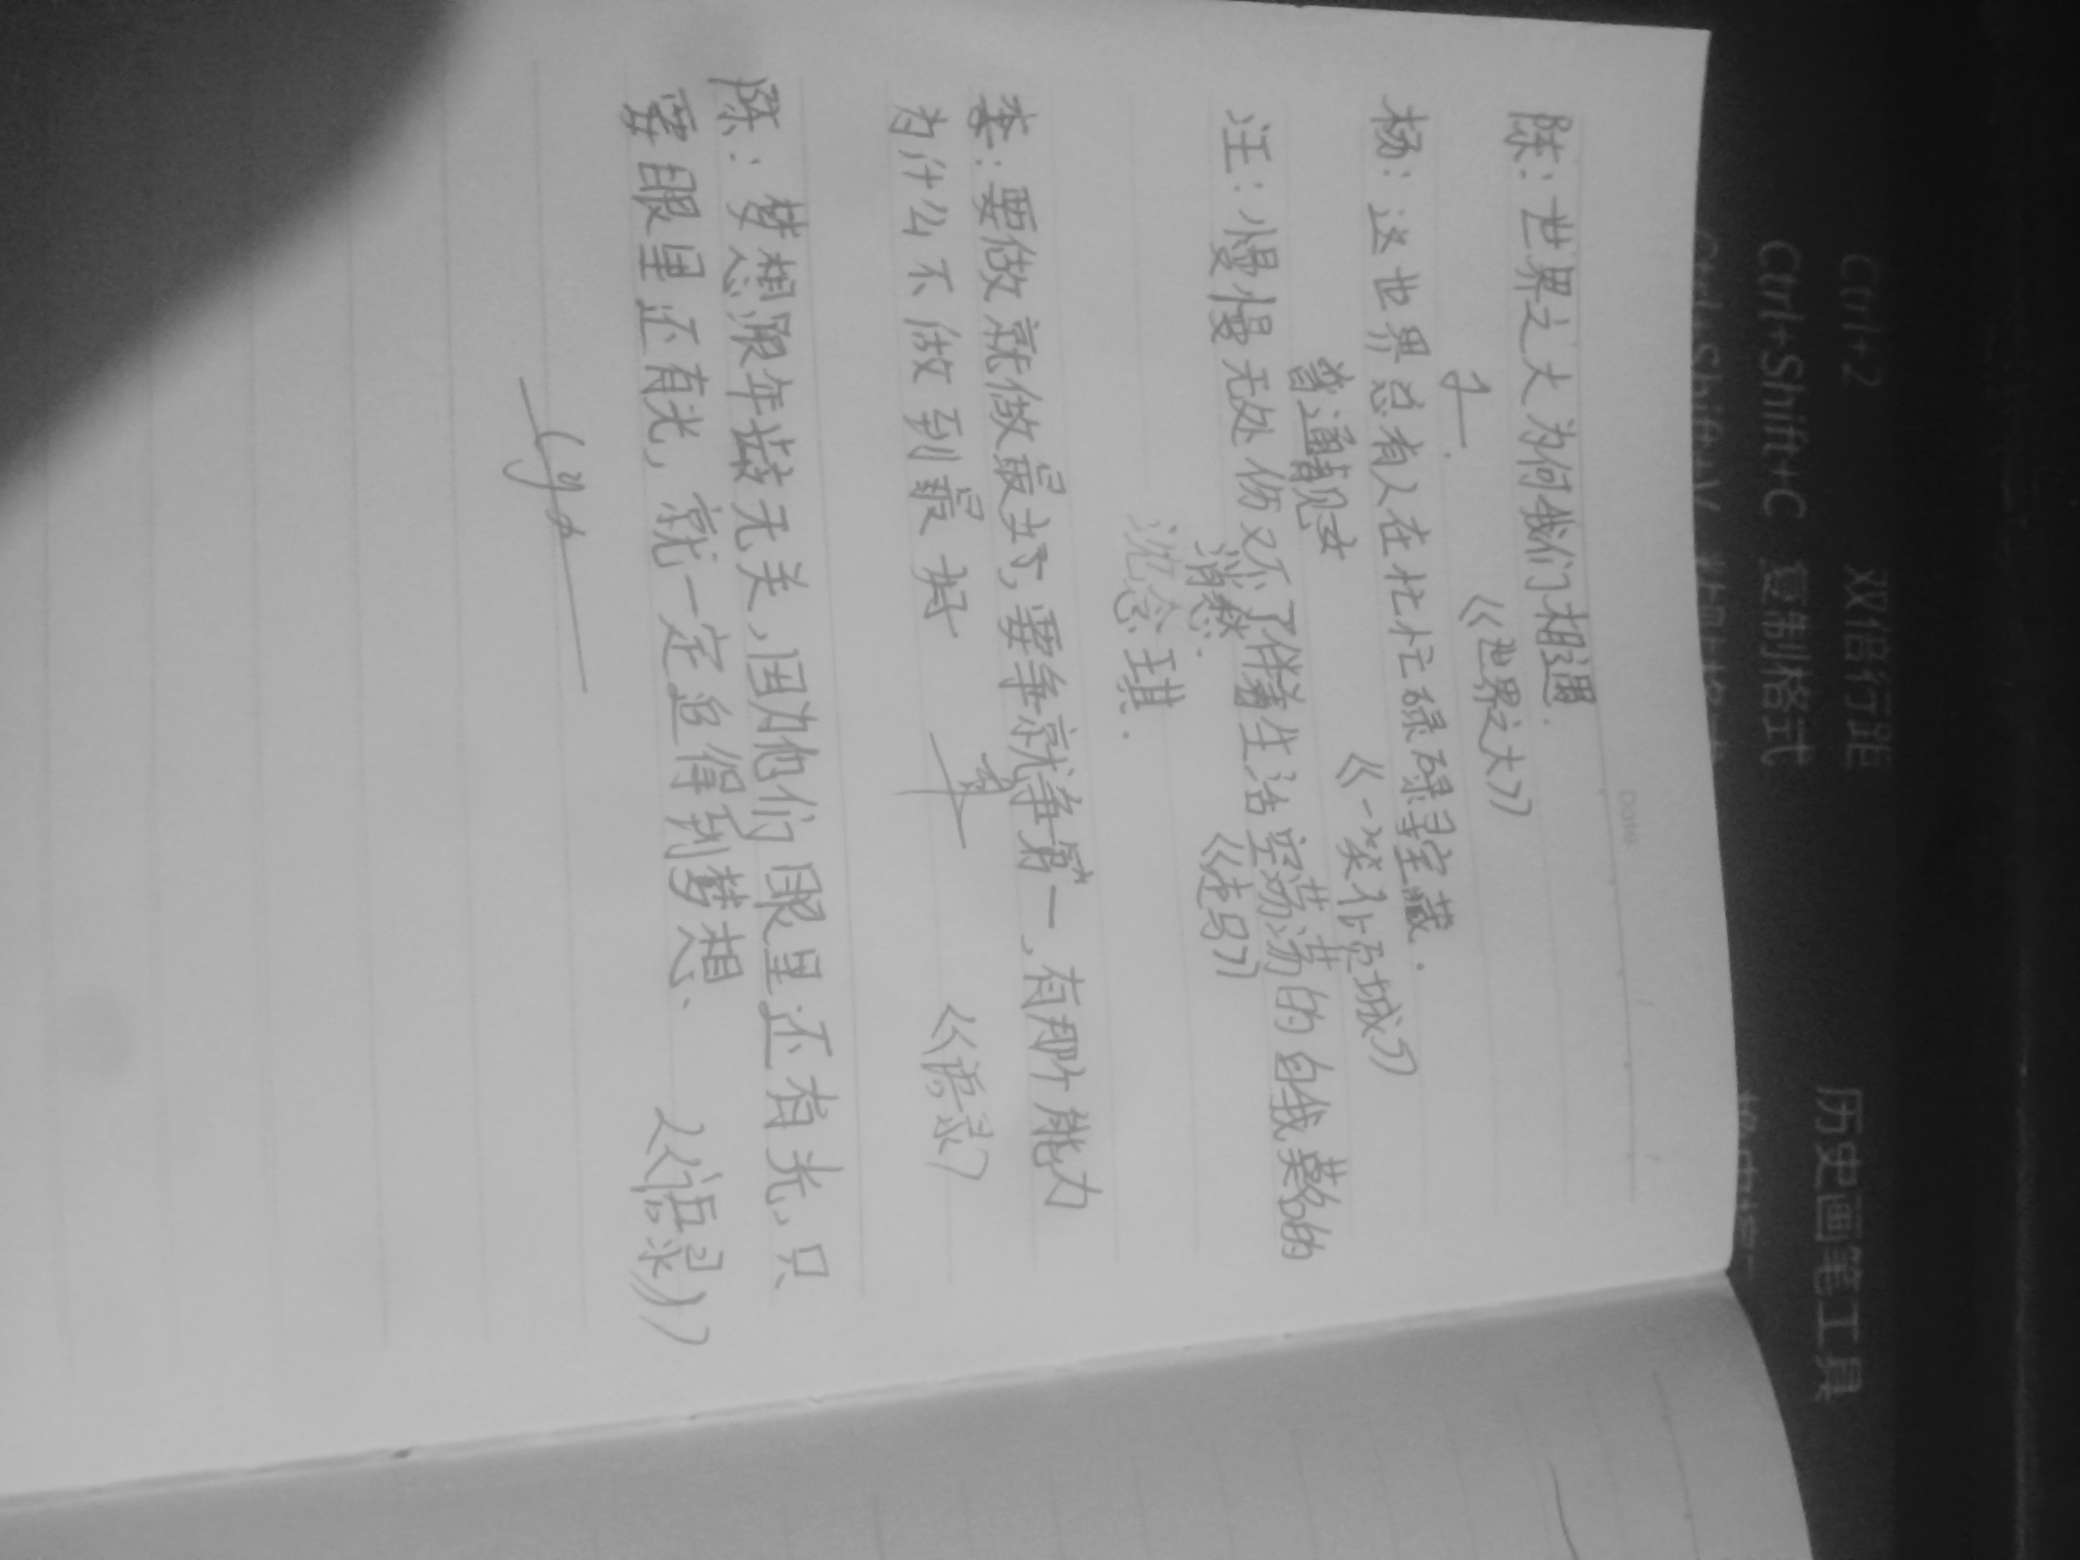 Ctrl+2 双倍行距
Ctrl+Shift+C 复制格式
历史画笔工具
Ctrl+Shift+V
DATE
陈：世界之大为何我们相遇.
《世界之大》
杨：这世界总有人在忙忙碌碌寻宝藏.
《一笑化倾城》
汪：慢慢无处伤又不了伴着生活空荡荡的自我蒙的
《走马》
沈念琪.
李：要做就做最好，要争就争第一，有那个能力
为什么不做到最好
《语录》
陈：梦想跟年龄无关，因为他们眼里还有光，只
要眼里还有光，就一定追得到梦想、
《语录》